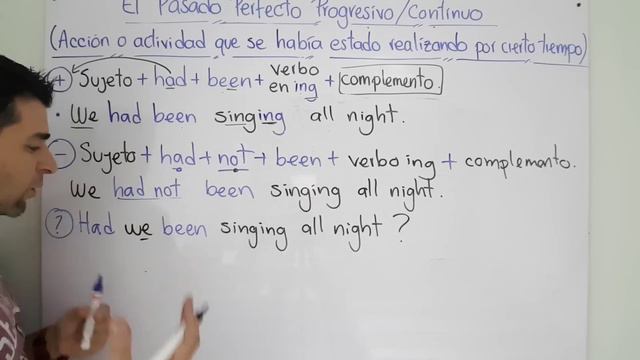 El Pasado Perfecto Progresivo/Continuo
(Acción o actividad que se había estado realizando por cierto tiempo)
+ Sujeto + had + been + verbo en ing + complemento.
· We had been singing all night.
- Sujeto + had + not + been + verbo ing + complemento.
We had not been singing all night.
? Had we been singing all night?